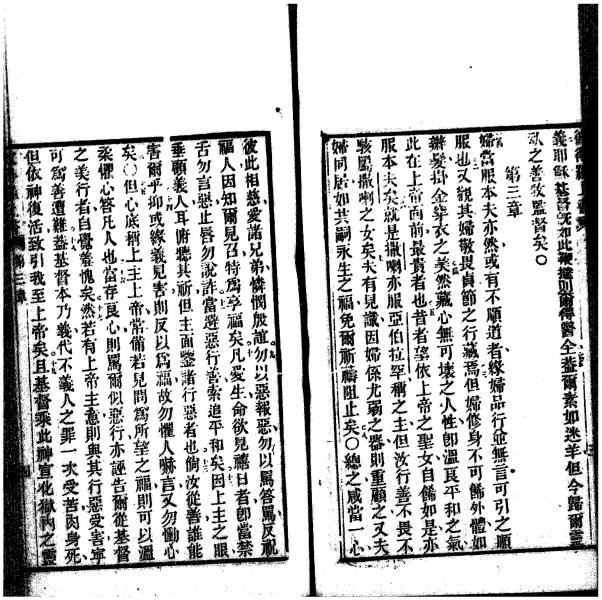 義耶穌基督既如此鞭撻則爾得醫全蓋爾素如迷羊但今歸爾靈
之善牧監督矣○
第三章
婦當服本夫亦然或有不願道者緣婦品行並無言可引之順
服也又觀其婦敬畏貞節之行藏焉但婦修身不可餙外體如
辮髮掛金穿衣之美然藏心無可壞之人性卽溫良平和之氣
此在上帝面前最貴者也昔者望依上帝之聖女自餙如是亦
服本夫矣就是撒喇亦服亞伯拉罕稱之主但汝行善不畏不
駭屬撒喇之女矣夫有見識因婦係尤弱之器則重顧之又夫
婦同居如共嗣永生之福免爾祈禱阻止矣○總之咸當一心
彼此相慈愛諸兄弟憐憫殷誼勿以惡報惡勿以罵答罵反祝
福人因知爾見召特爲享福矣凡愛生命欲見禧日者卽當禁
舌勿言惡止唇勿說詐當避惡行善索追平和矣因上主之眼
垂顧義人耳俯聽其祈但主面鑒諸行惡者也倘汝從善誰能
害爾乎抑或緣義見害則反以爲福故勿懼人嚇言又勿働心
矣○但心底柄上主上帝常備若見問爲所望之福則可以溫
柔懼心答凡人也當存良心則罵爾似惡行亦誣告爾從基督
之美行者自覺羞愧矣然若有上帝主意則與其行惡受害寧
可爲善遭難蓋基督本乃義代不義人之罪一次受苦肉身死
但依神復活致引我至上帝矣且基督乘此神宣化獄內之靈